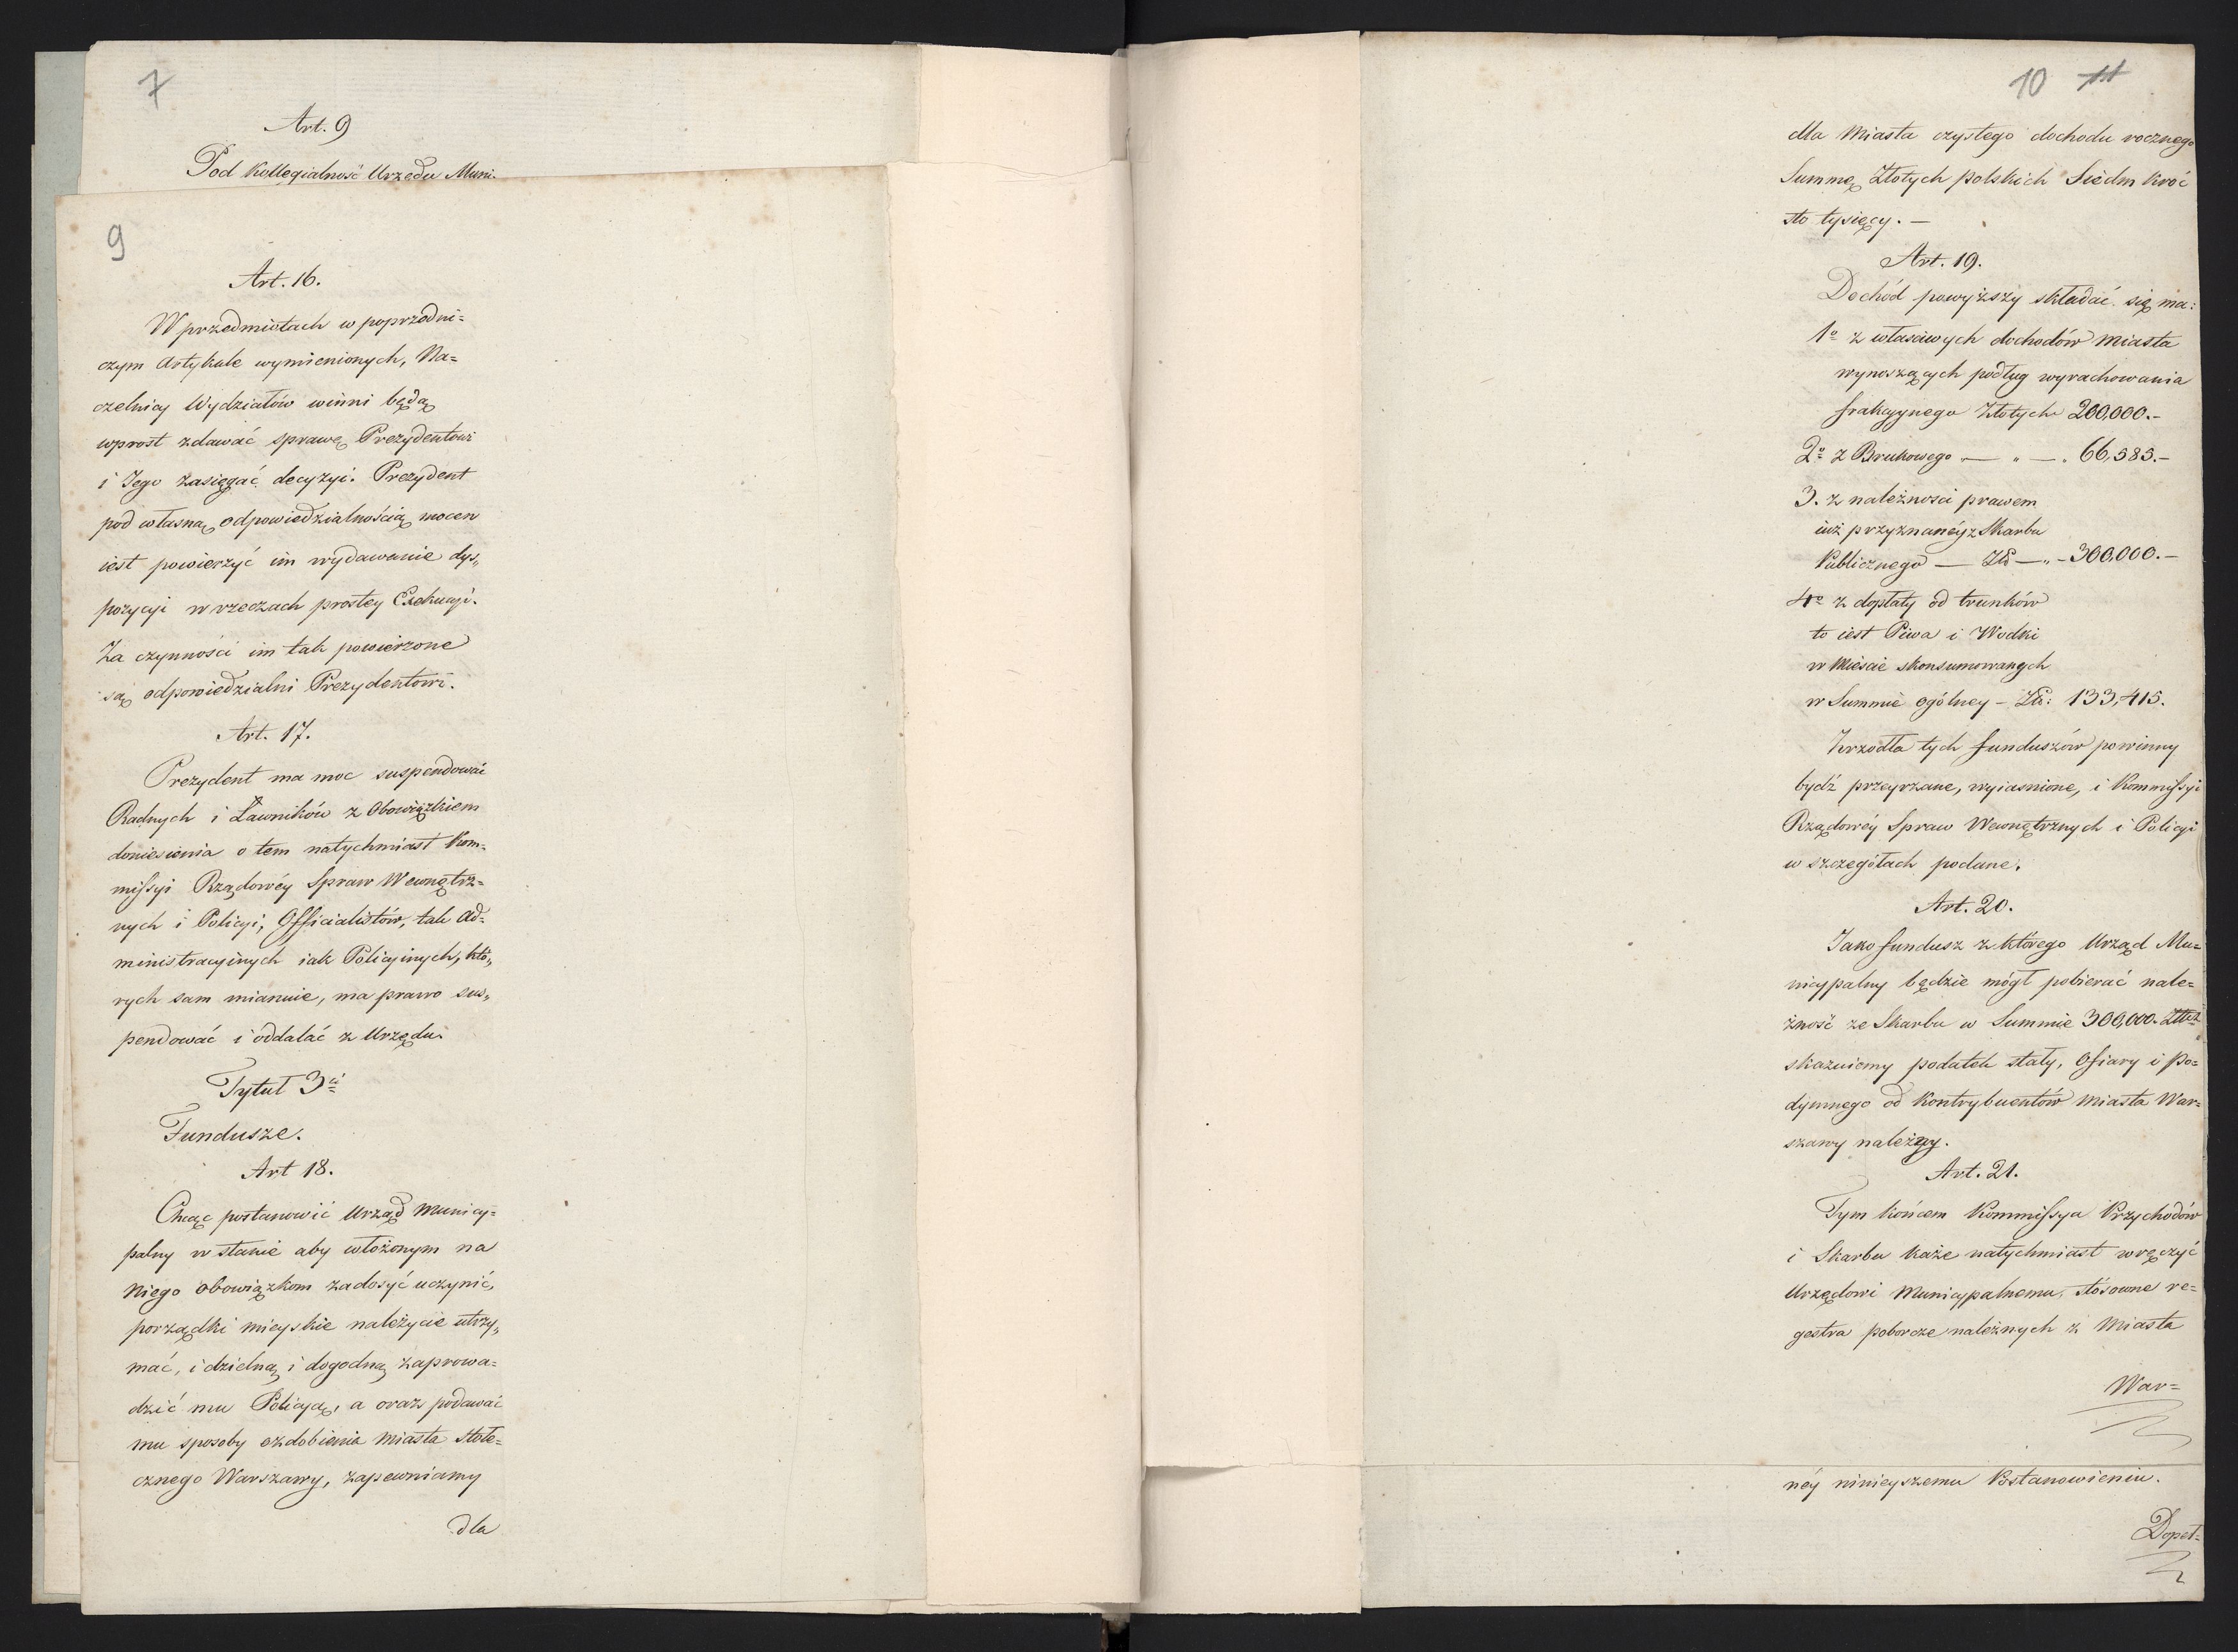 7
Art. 9
Pod Kollegialność Urzędu Muni-
9
Art. 16.
W przedmiotach w poprzedni=
czym Artykule wymienionych, Na=
czelnicy Wydziałów winni będą
wprost zdawać sprawę Prezydentowi
i Jego zasięgać decyzyi. Prezydent
pod własną odpowiedzialnością mocen
iest powierzyć im wydawanie dys„
pozycyi w rzeczach prostey Exekucyi.
Za czynności im tak powierzone
są odpowiedzialni Prezydentowi.
Art. 17.
Prezydent ma moc suspendować
Radnych i Ławników z Obowiązkiem
doniesienia o tem natychmiast Kom=
missyi Rządowéy Spraw Wewnętrz=
nych i Policyi; Officialistów, tak Ad=
ministracyinych iak Policyinych, któ„
rych sam mianuie, ma prawo sus„
pendować i oddalać z Urzędu.
Tytuł 3ci
Fundusze.
Art 18.
Chcąc postanowić Urząd Municy=
palny w stanie aby włożonym na
niego obowiązkom zadosyć uczynić,
porządki mieyskie należycie utrzy„
mać, i dzielną i dogodną zaprowa=
dzić mu Policyą, a oraz podawać
mu sposoby ozdobienia Miasta Stołe=
cznego Warszawy, zapewniamy
dla
10 11
dla Miasta czystego dochodu rocznego
Summę Złotych polskich Siedm kroć
sto tysięcy. —
Art. 19.
Dochód powyższy składać się ma:
1o z własciwych dochodów Miasta
wynoszących podług wyrachowania
frakcyynego Złotych 200,000.-
2o z Brukowego — „ — . 66,585.-
3. z należnosci prawem
iuż przyznanéy z Skarbu
Publicznego — Zł — „ - 300,000.-
4o z dopłaty od trunków
to iest Piwa i Wodki
w Miescie skonsumowanych
w Summie ogólney - Zł: 133,415.
Zrzodła tych funduszów powinny
bydź przeyrzane, wyiasnione, i Kommissyi
Rządowéy Spraw Wewnętrznych i Policyi
w szczegółach podane.
Art. 20.
Jako fundusz z którego Urząd Mu=
nicypalny będzie mógł pobierać nale=
żność ze Skarbu w Summie 300,000.
skazuiemy podatek stały, Ofiary i po=
dymnego od Kontrybuentów Miasta War=
szawy należny.
Art. 21.
Tym końcem Kommissya Przychodów
i Skarbu każe natychmiast wręczyć
Urzędowi Municypalnemu, stósowne re=
gestra poborcze należnych z Miasta
War=
néy ninieyszemu Postanowieniu.
Dopeł=